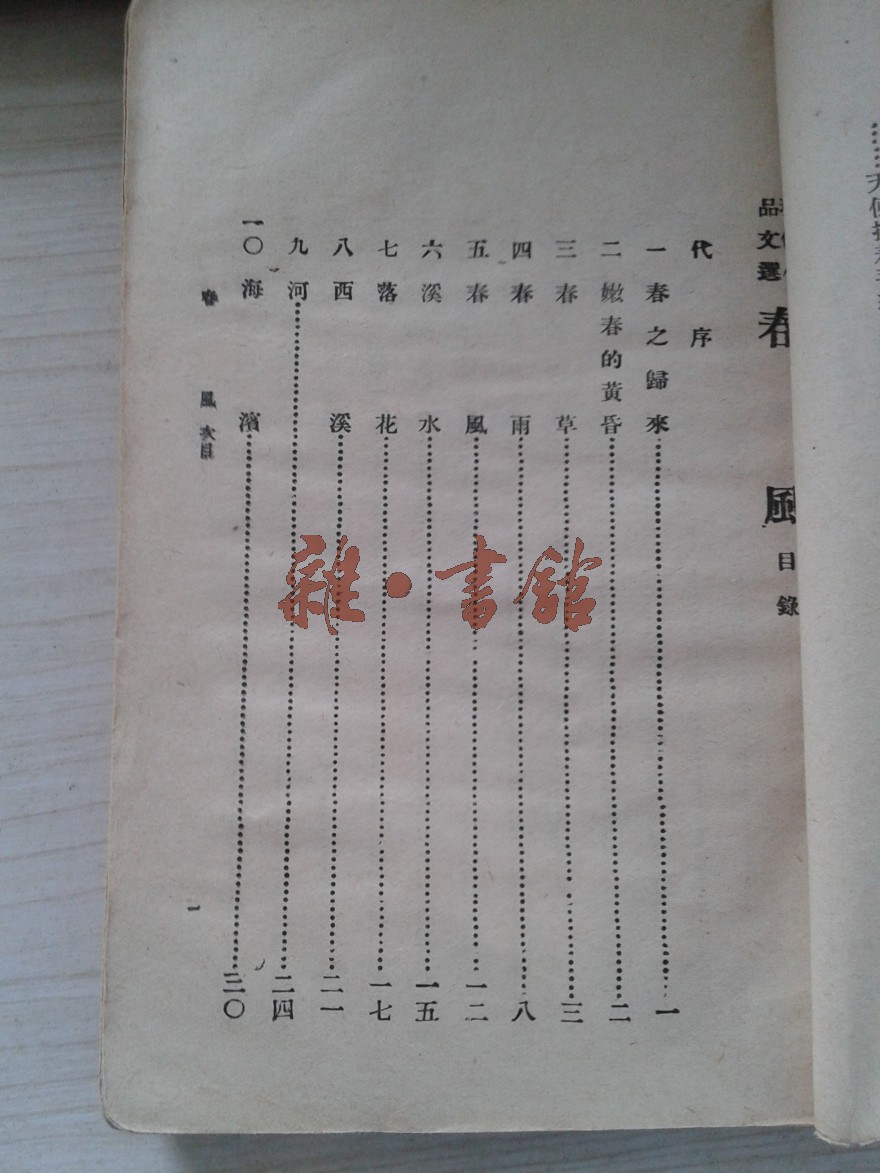 品文選
春風目錄
代序
一 春之歸來……一
二 嫩春的黃昏……二
三 春草……三
四 春雨……八
五 春風……一二
六 溪水……一五
七 落花……一七
八 西溪……二一
九 河……二四
一〇 海濱……三〇
春風 次目
一
雜·書館